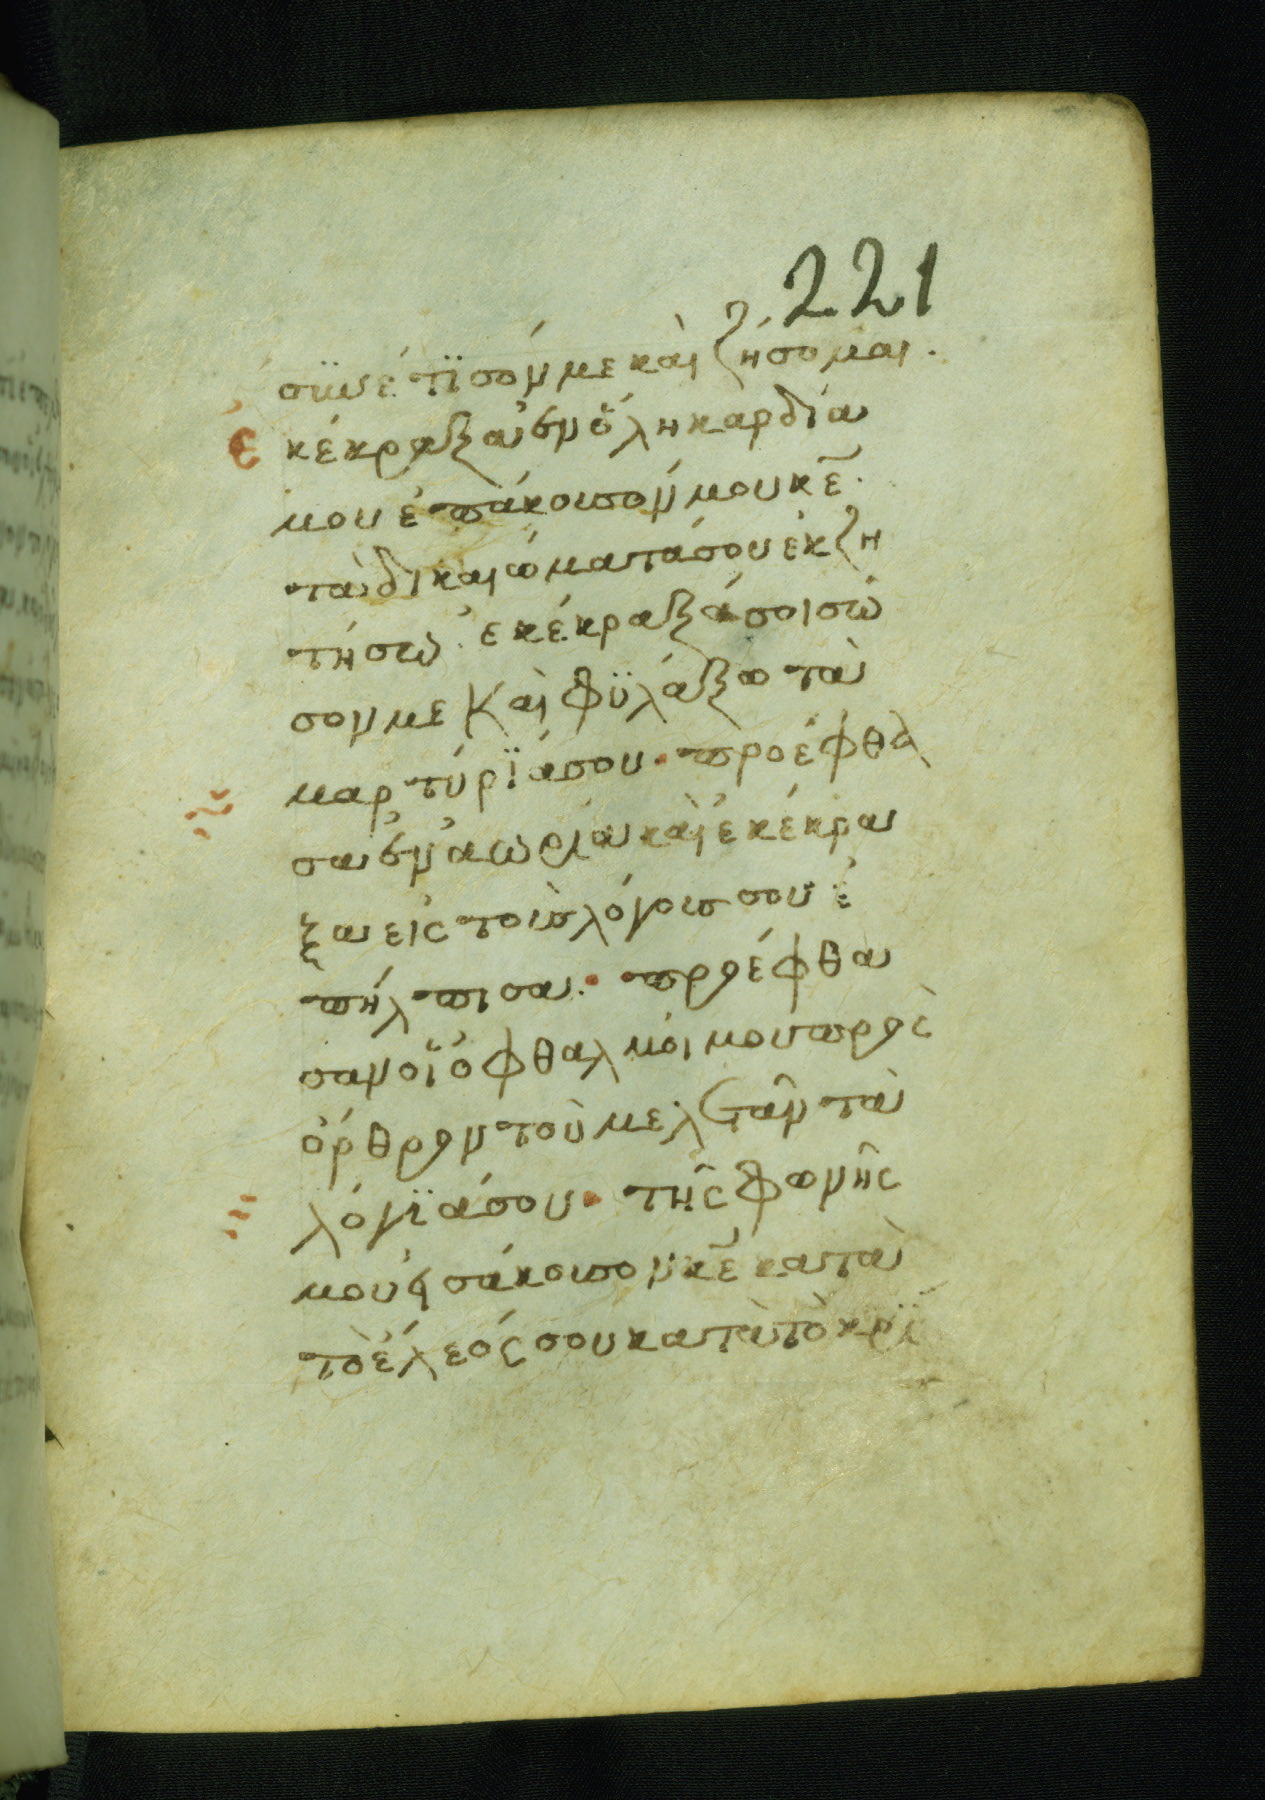 221
σϋνέτϊσόν με καὶ ζήσομαι.
Ἐκέκραξα ἐν ὅλη καρδία
μου ἐπάκουσόν μου κε̄.
τὰ δικαιώματά σου ἐκζη
τήσω. ἐκέκραξά σοι σῶ
σον με καὶ φϋλάξω τὰ
μαρτύρϊά σου. προέφθα
σα ἐν ἀωρία καὶ ἐκέκρα
ξα εἰς τοὺς λόγους σου ἐ
πήλπισα. προέφθα
σαν οἱ ὀφθαλμοί μου πρὸς
ὄρθρον τοῦ μελετᾶν τὰ
λόγϊά σου. τῆς φωνῆς
μου εἰσάκουσον κε̄ κατὰ
τὸ ἔλεός σου κατὰ τὸ κρΐ